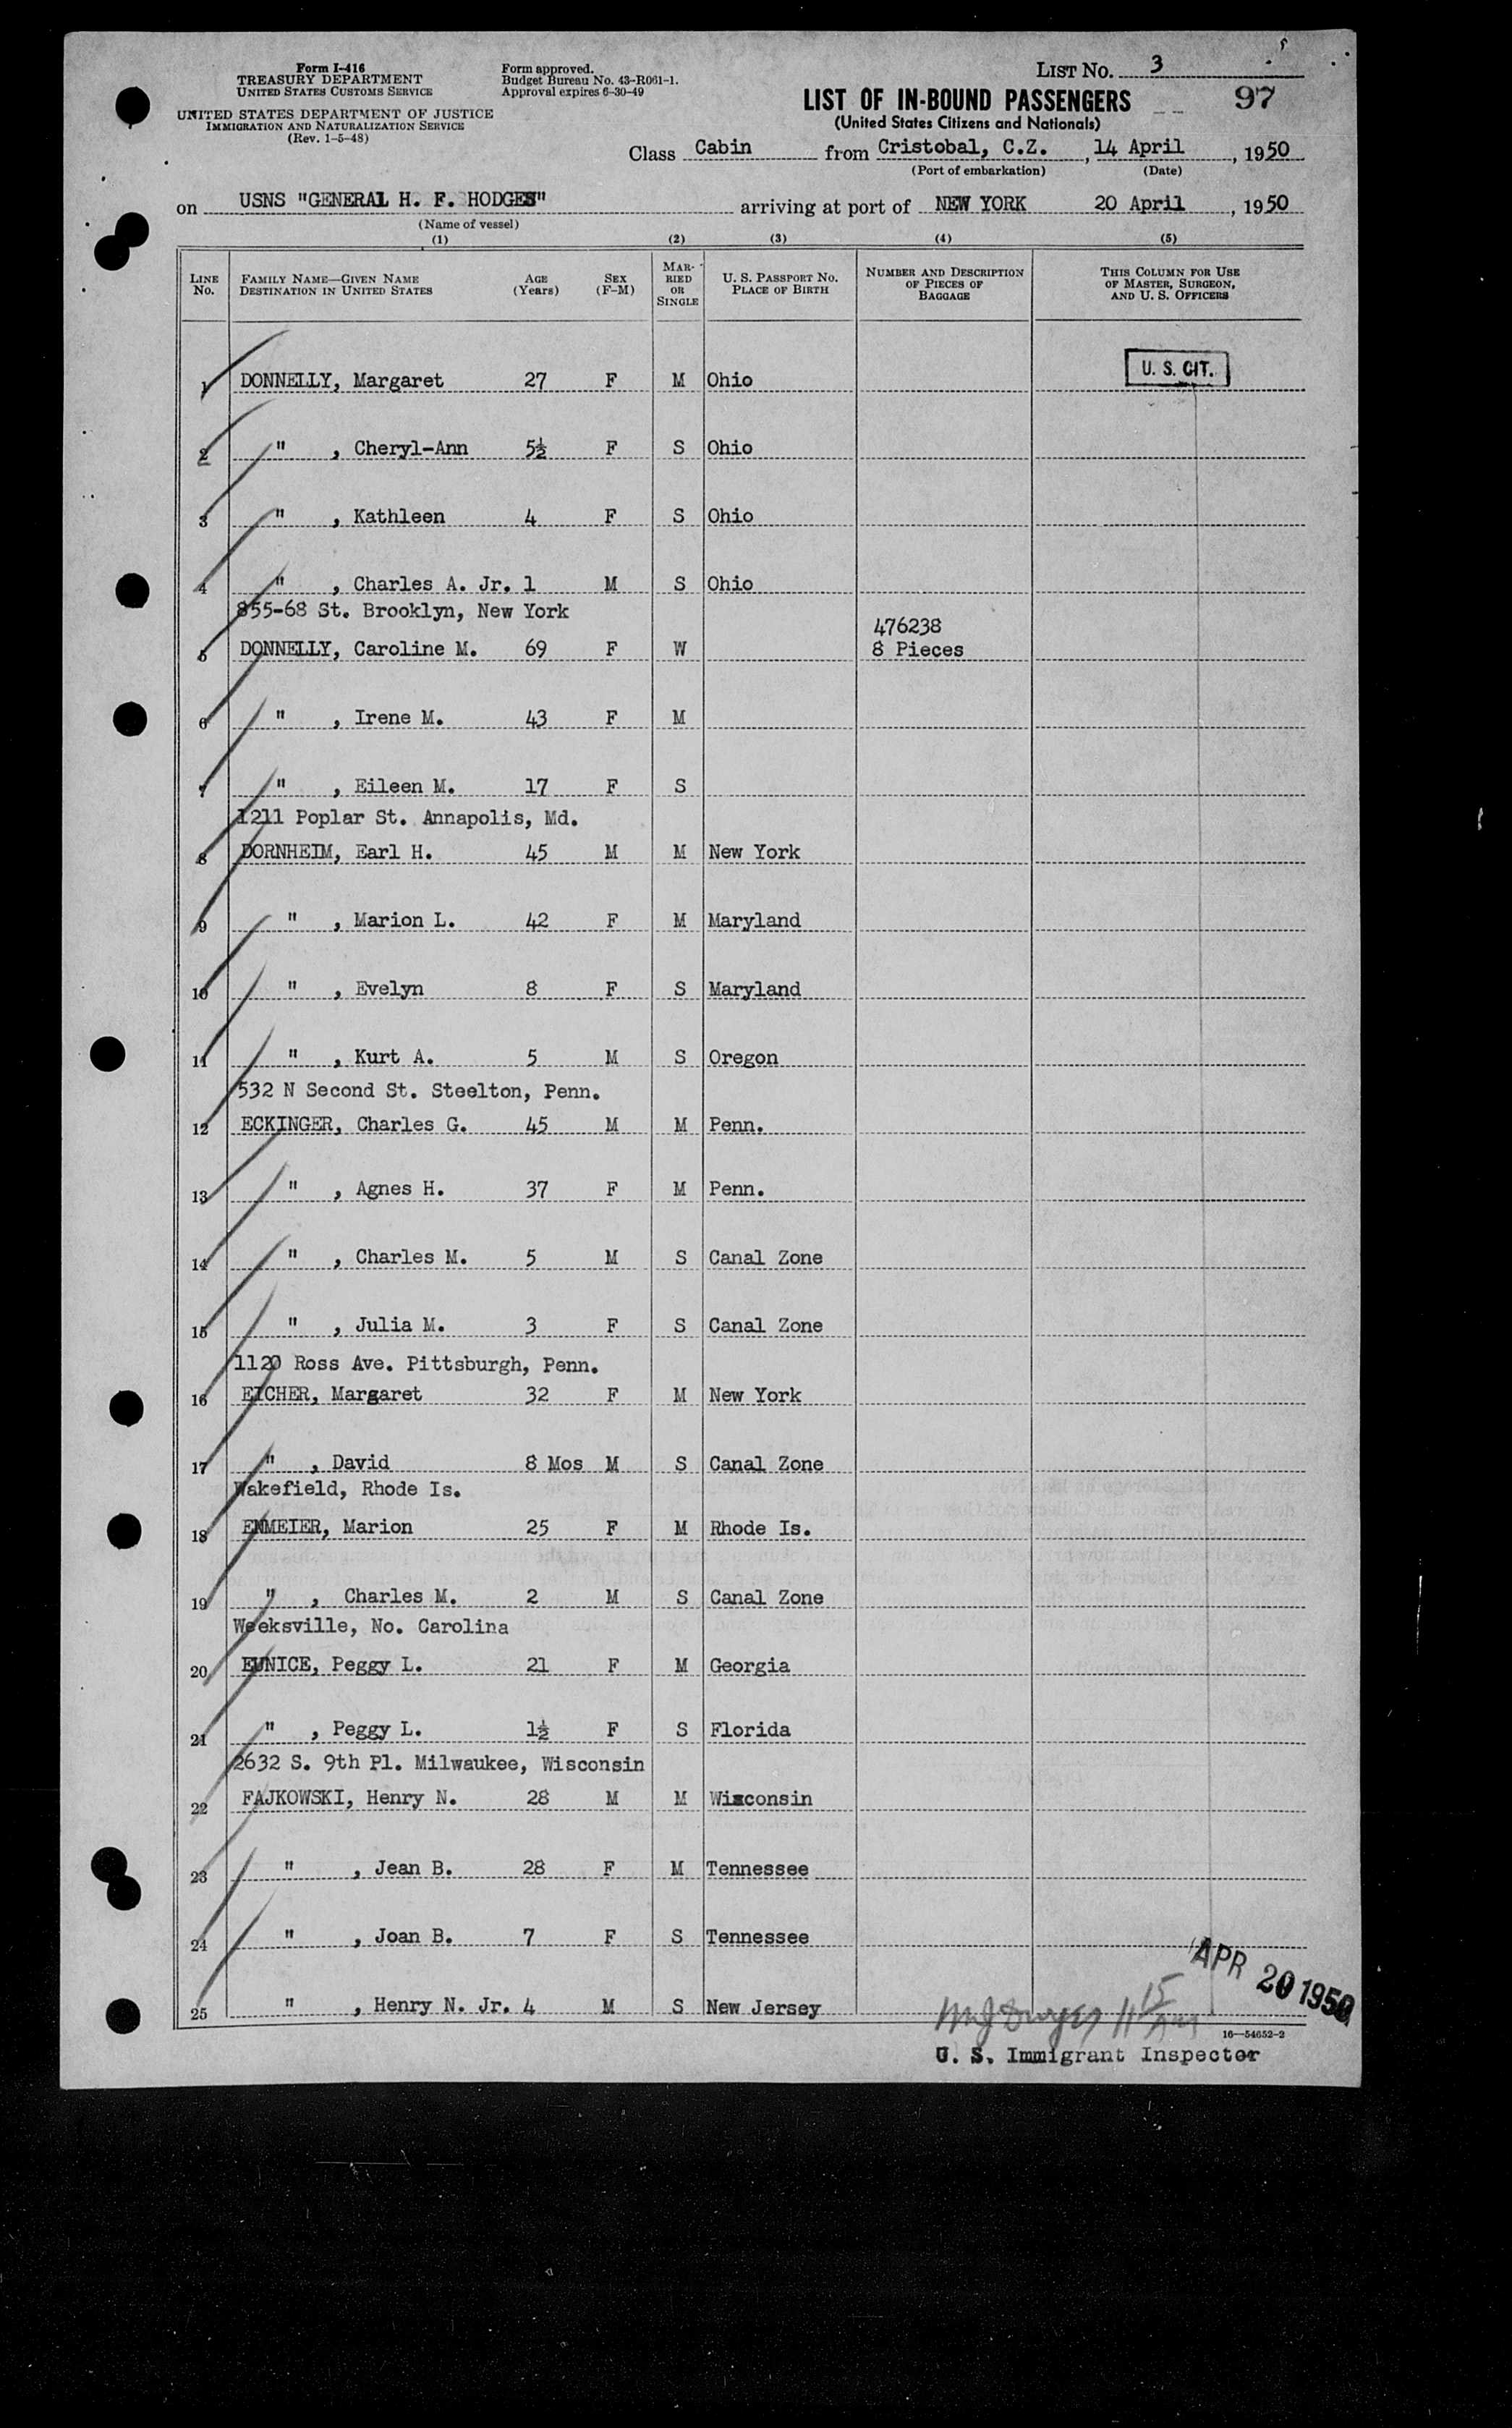 Form I-416
TREASURY DEPARTMENT
UNITED STATES CUSTOMS SERVICE
UNITED STATES DEPARTMENT OF JUSTICE
IMMIGRATION AND NATURALIZATION SERVICE
(Rev. 1-5-48)
Form approved.
Budget Bureau No. 43-R061-1.
Approval expires 6-30-49
LIST NO. 3
LIST OF IN-BOUND PASSENGERS 97
(United States Citizens and Nationals)
Class Cabin from Cristobal, C.Z. , 14 April , 1950
(Port of embarkation) (Date)
on USNS "GENERAL H. F. HODGES" arriving at port of NEW YORK 20 April , 1950
(Name of vessel)
(1) (2) (3) (4) (5)
LINE No. FAMILY NAME—GIVEN NAME DESTINATION IN UNITED STATES AGE (Years) SEX (F-M) MARRIED OR SINGLE U. S. PASSPORT NO. PLACE OF BIRTH NUMBER AND DESCRIPTION OF PIECES OF BAGGAGE THIS COLUMN FOR USE OF MASTER, SURGEON, AND U. S. OFFICERS
1 DONNELLY, Margaret 27 F M Ohio U. S. CIT.
2 " , Cheryl-Ann 5½ F S Ohio
3 " , Kathleen 4 F S Ohio
4 " , Charles A. Jr. 1 M S Ohio
855-68 St. Brooklyn, New York
476238
5 DONNELLY, Caroline M. 69 F W 8 Pieces
6 " , Irene M. 43 F M
7 " , Eileen M. 17 F S
1211 Poplar St. Annapolis, Md.
8 DORNHEIM, Earl H. 45 M M New York
9 " , Marion L. 42 F M Maryland
10 " , Evelyn 8 F S Maryland
11 " , Kurt A. 5 M S Oregon
532 N Second St. Steelton, Penn.
12 ECKINGER, Charles G. 45 M M Penn.
13 " , Agnes H. 37 F M Penn.
14 " , Charles M. 5 M S Canal Zone
15 " , Julia M. 3 F S Canal Zone
1120 Ross Ave. Pittsburgh, Penn.
16 EICHER, Margaret 32 F M New York
17 " , David 8 Mos M S Canal Zone
Wakefield, Rhode Is.
18 ENMEIER, Marion 25 F M Rhode Is.
19 " , Charles M. 2 M S Canal Zone
Weeksville, No. Carolina
20 EUNICE, Peggy L. 21 F M Georgia
21 " , Peggy L. 1½ F S Florida
2632 S. 9th Pl. Milwaukee, Wisconsin
22 FAJKOWSKI, Henry N. 28 M M Wisconsin
23 " , Jean B. 28 F M Tennessee
24 " , Joan B. 7 F S Tennessee
APR 20 1950
25 " , Henry N. Jr. 4 M S New Jersey
16—54652-2
U. S. Immigrant Inspector